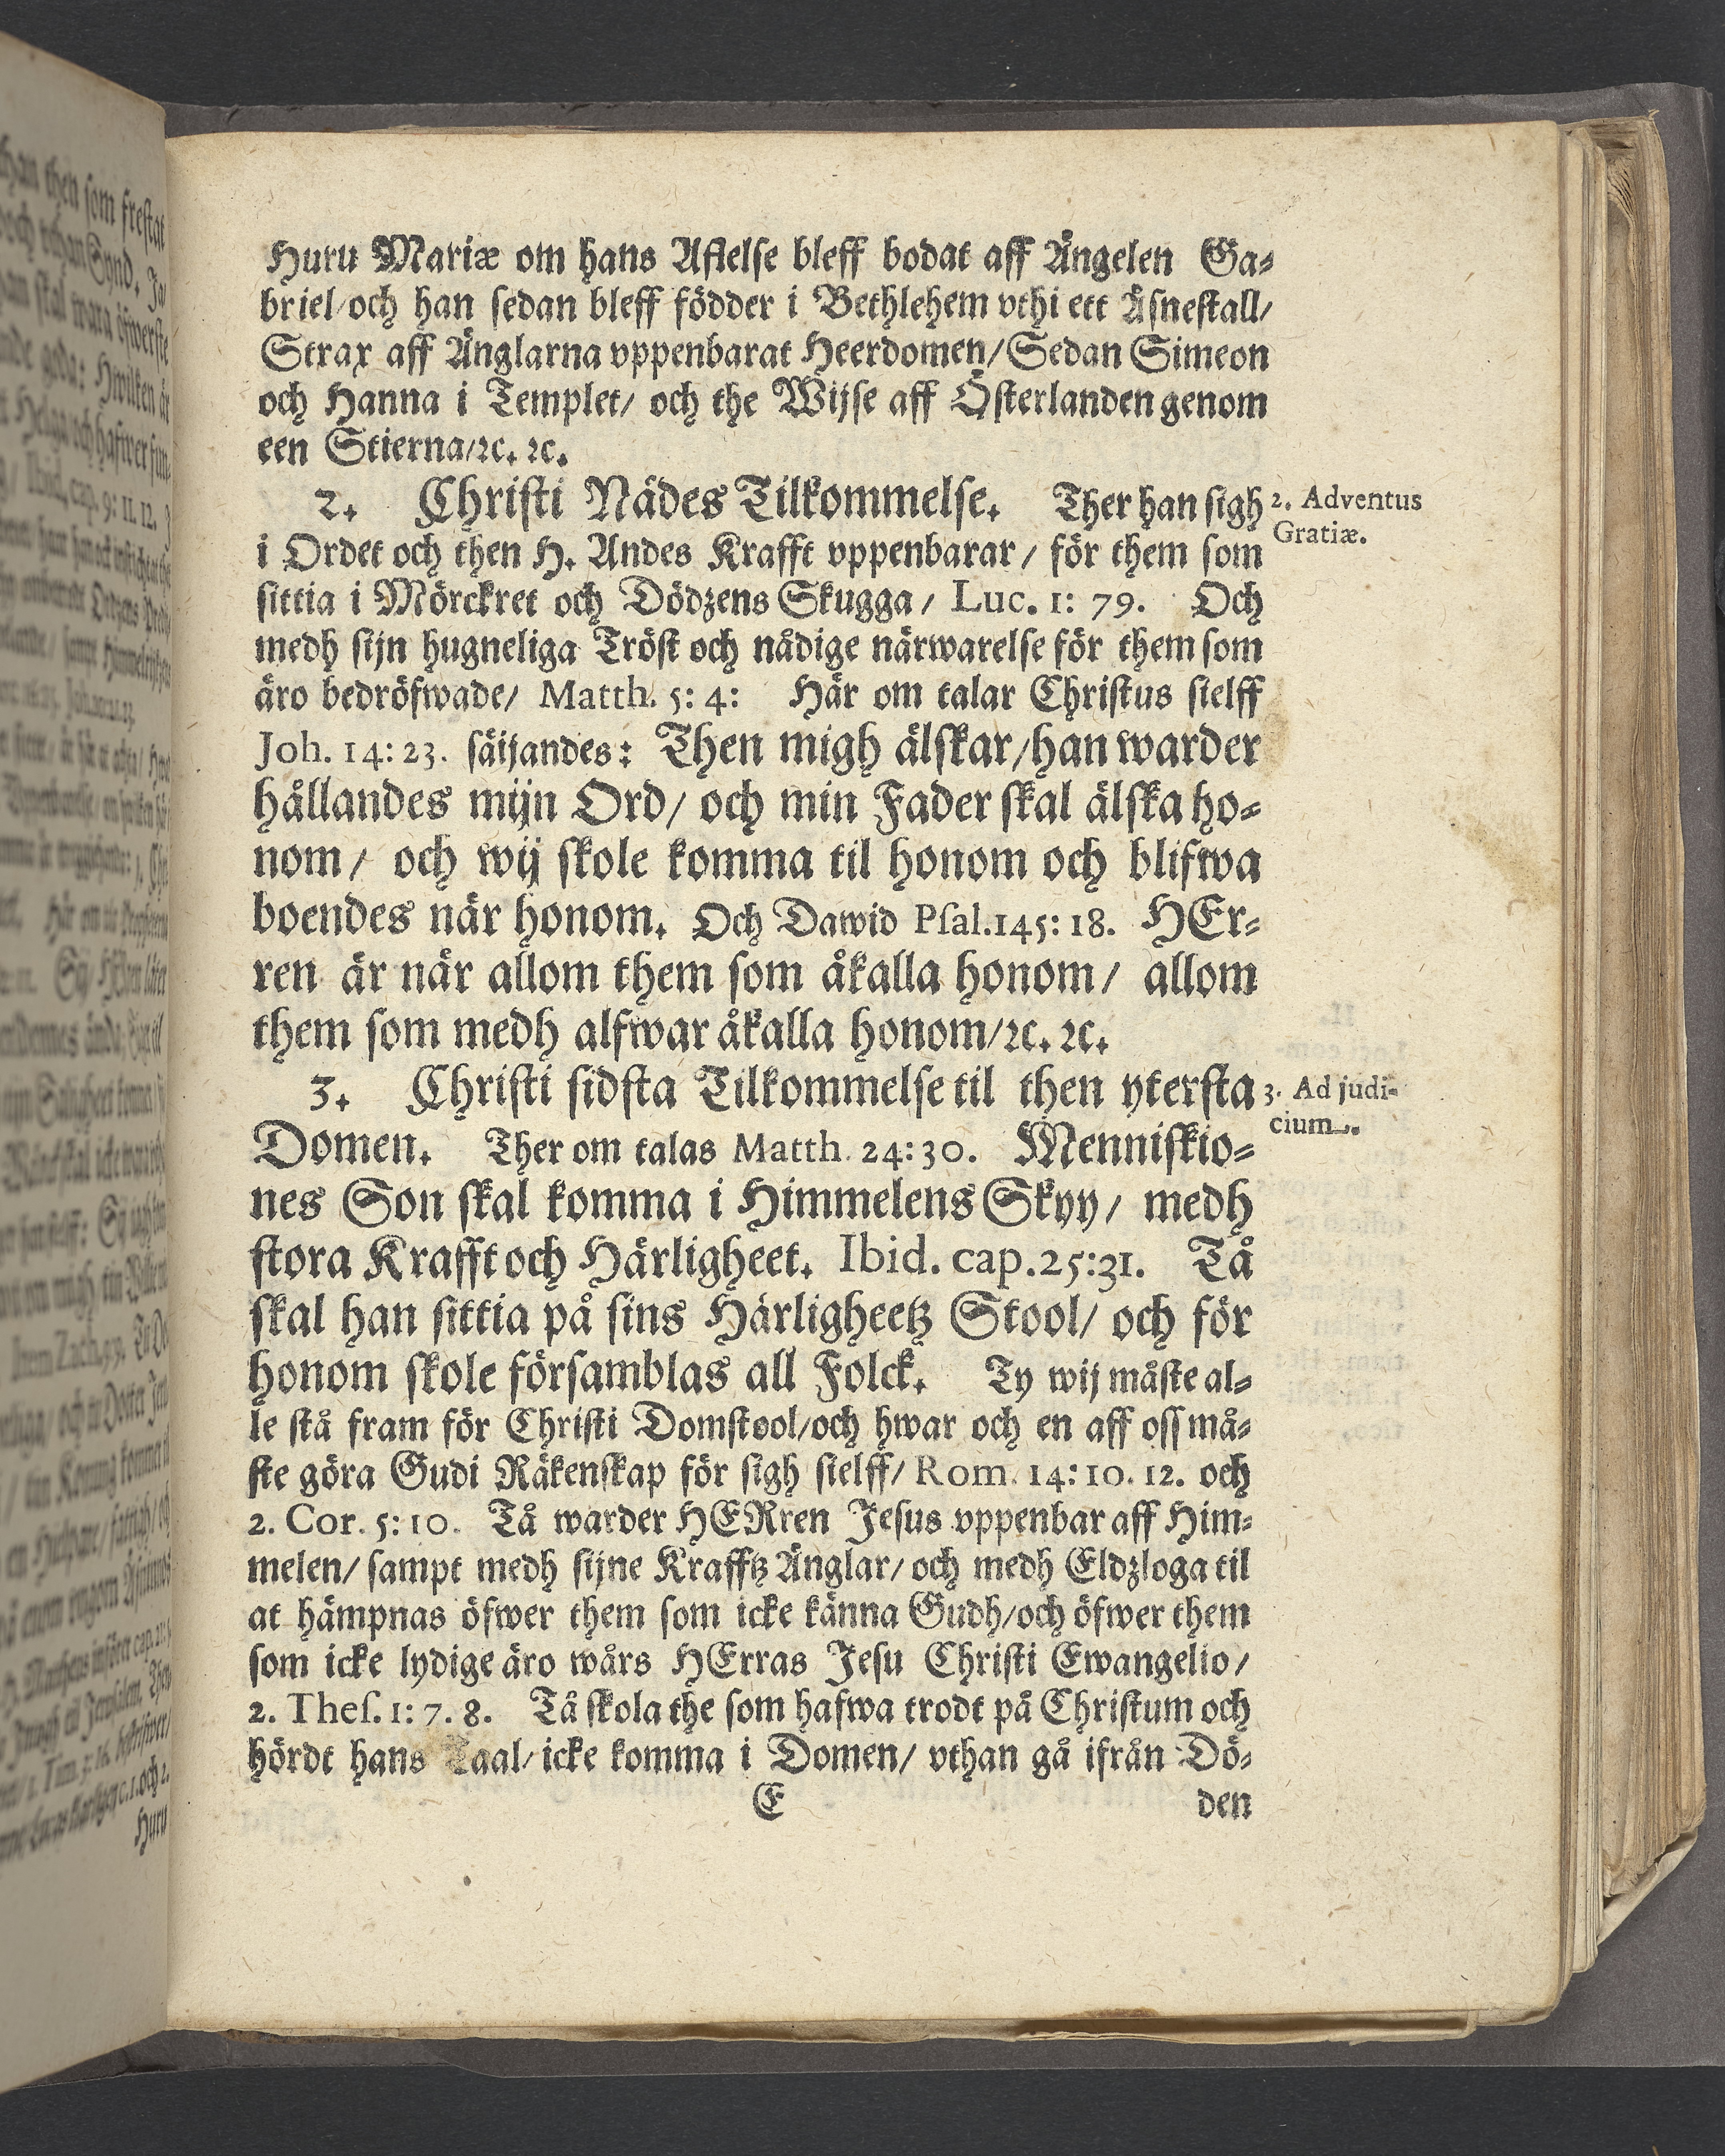 Huru Mariæ om hans Aflelse bleff bodat aff Ängelen Ga-
briel/och han sedan bleff födder i Bethlehem vthi ett Åsnestall/
Strax aff Änglarna vppenbarat Heerdomen/Sedan Simeon
och Hanna i Templet/ och the Wijse aff Österlanden genom
een Stierna/ꝛc. ꝛc.
2. Christi Nådes Tilkommelse. Ther han sigh
2. Adventus
Gratiæ.
i Ordet och then H. Andes Krafft vppenbarar/ för them som
sittia i Mörckret och Dödzens Skugga/ Luc. 1: 79. Och
medh sijn hugneliga Tröst och nådige närwarelse för them som
äro bedröfwade/ Matth. 5: 4: Här om talar Christus sielff
Joh. 14: 23. säijandes: Then migh älskar/han warder
hållandes mijn Ord/ och min Fader skal älska ho-
nom/ och wij skole komma til honom och blifwa
boendes när honom. Och Dawid Psal.145: 18. HEr-
ren är när allom them som åkalla honom/ allom
them som medh alfwar åkalla honom/ꝛc. ꝛc.
3. Christi sidsta Tilkommelse til then ytersta
3. Ad judi-
cium.
Domen. Ther om talas Matth. 24: 30. Menniskio-
nes Son skal komma i Himmelens Skyy/ medh
stora Krafft och Härligheet. Ibid. cap. 25:31. Tå
skal han sittia på sins Härligheetz Stool/ och för
honom skole församblas all Folck. Ty wij måste al-
le stå fram för Christi Domstool/och hwar och en aff oss må-
ste göra Gudi Räkenskap för sigh sielff/ Rom. 14: 10. 12. och
2. Cor. 5: 10. Tå warder HERren Jesus vppenbar aff Him-
melen/ sampt medh sijne Krafftz Änglar/ och medh Eldzloga til
at hämpnas öfwer them som icke känna Gudh/och öfwer them
som icke lydige äro wårs HErras Jesu Christi Ewangelio/
2. Thes. 1: 7. 8. Tå skola the som hafwa trodt på Christum och
hördt hans Taal/ icke komma i Domen/ vthan gå ifrån Dö-
E den